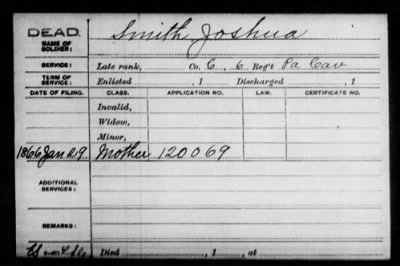 DEAD.
NAME OF SOLDIER: Smith, Joshua
SERVICE: Late rank, Co. C, 6 Reg't Pa Cav
TERM OF SERVICE: Enlisted , 1 Discharged , 1
DATE OF FILING. CLASS. APPLICATION NO. LAW. CERTIFICATE NO.
Invalid,
Widow,
Minor,
1866 Jan 29 Mother 120069
ADDITIONAL SERVICES:
REMARKS:
Died , 1 , at